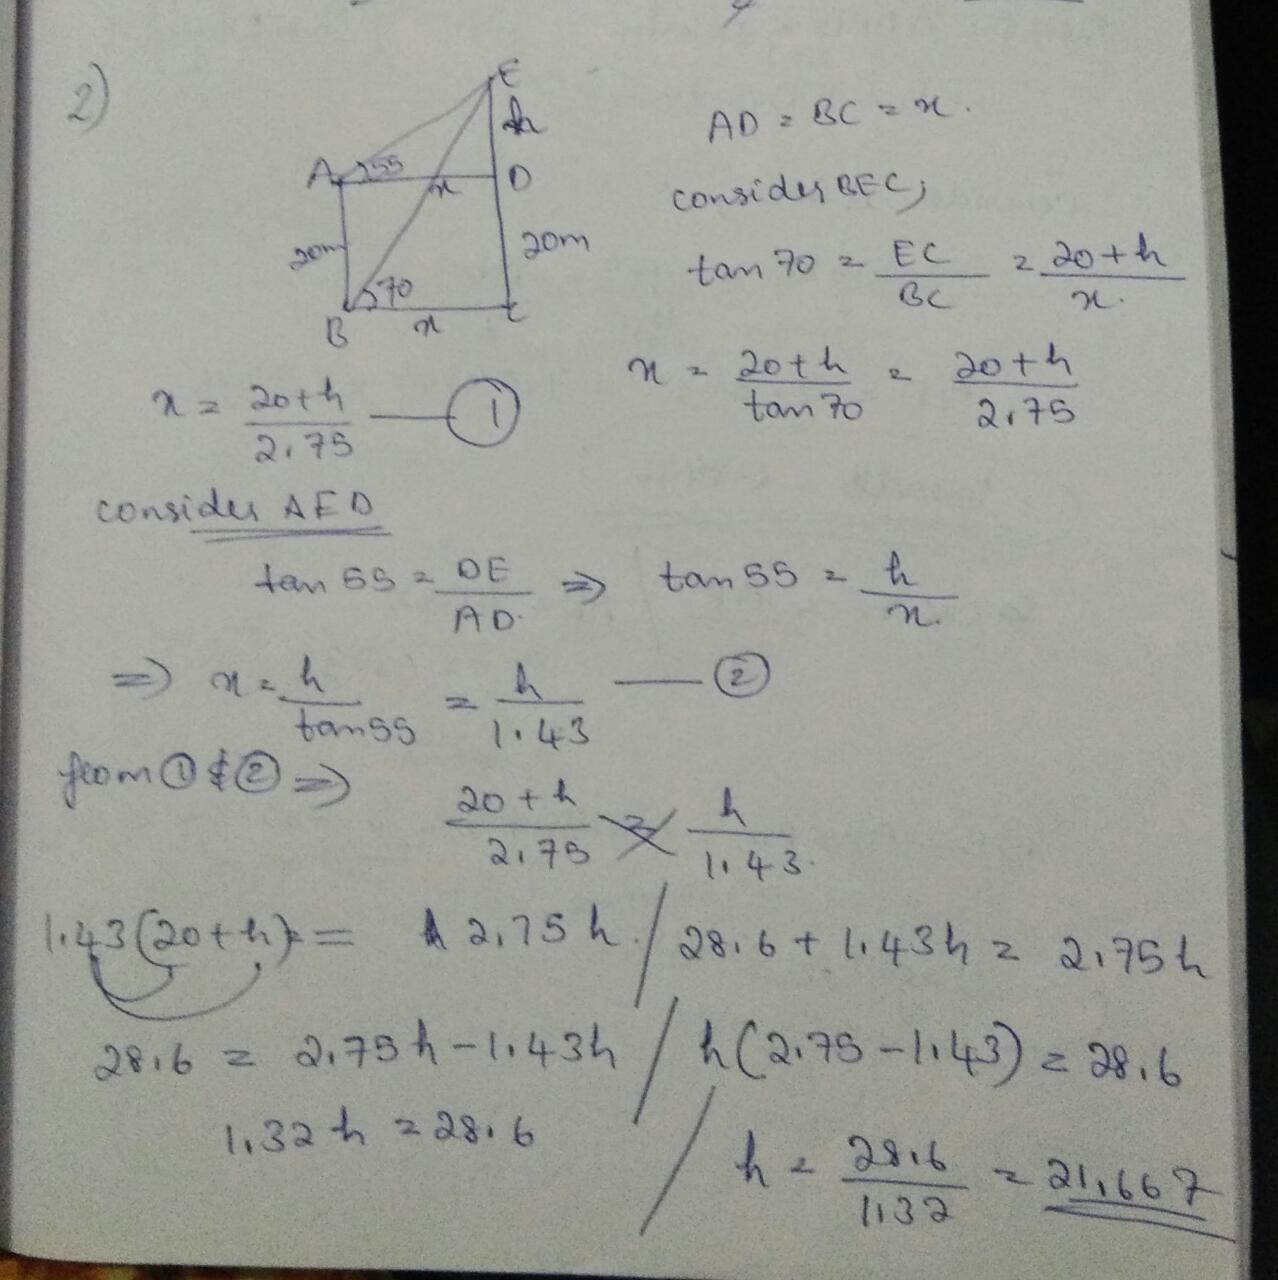 2)
E
h
A 55 x D
20m 20m
70
B x C
AD = BC = x.
consider BEC;
tan 70 = EC/BC = 20+h/x.
x = 20+h/tan 70 = 20+h/2.75
x = 20+h/2.75 — ①
consider AED
tan 55 = DE/AD. ⇒ tan 55 = h/x.
⇒ x = h/tan 55 = h/1.43 — ②
from ① & ② ⇒
20+h/2.75 = h/1.43.
1.43(20+h) = 2.75h. / 28.6 + 1.43h = 2.75h
28.6 = 2.75h - 1.43h / h(2.75 - 1.43) = 28.6
1.32h = 28.6 / h = 28.6/1.32 = 21.667